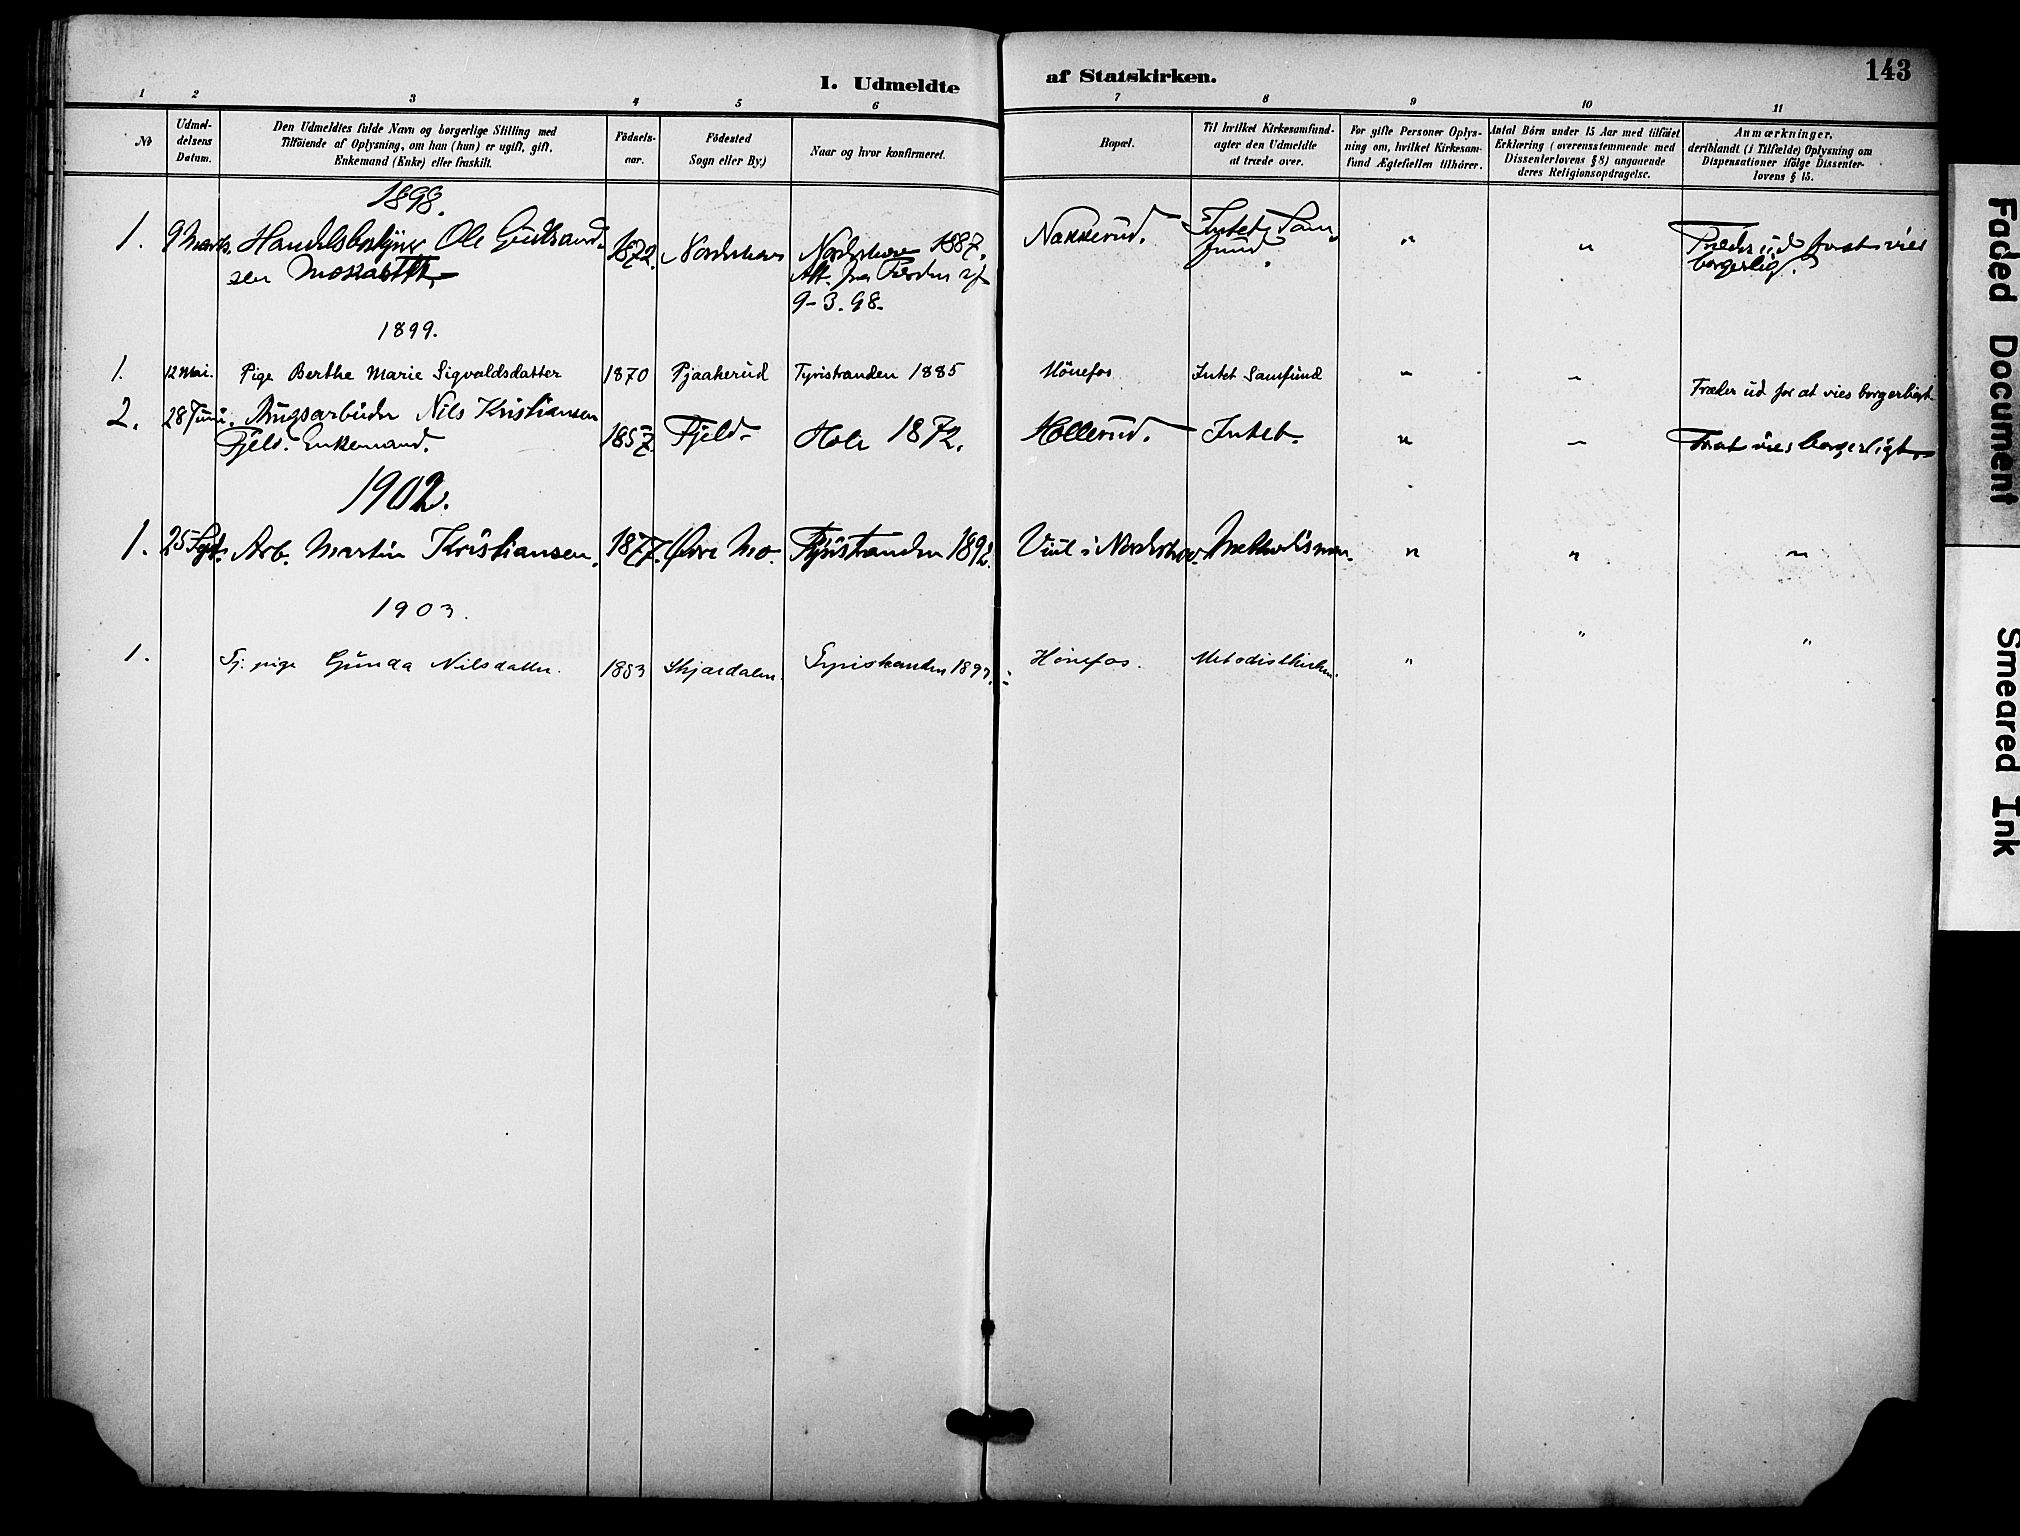 I. Udmeldte af Statskirken.
143
1 2 3 4 5 6 7 8 9 10 11
No
Udmel-
delsens
Datum.
Den Udmeldtes fulde Navn og borgerlige Stilling med
Tilföiende af Oplysning, om han (hun) er ugift, gift,
Enkemand (Enke) eller fraskilt.
Födsels-
aar.
Födested
Sogn eller By.)
Naar og hvor konfirmeret.
Bopæl.
Til hvilket Kirkesamfund
agter den Udmeldte
at træde over.
For gifte Personer Oplys-
ning om, hvilket Kirkesam-
fund Ægtefællen tilhörer.
Antal Börn under 15 Aar med tilföiet
Erklæring (overensstemmende med
Dissenterlovens § 8) angaaende
deres Religionsopdragelse.
Anmærkninger,
deriblandt (i Tilfælde) Oplysning om
Dispensationer ifölge Dissenter-
lovens § 15.
1898.
1. 9 Marts. Ole Gulbrand- 1872. Norderhov Norderhov 1887. Nakkerud. Intet Sam- " " Træder ud forat vies
sen Att. fra 9-3.98. fund. borgerlig.
1899.
1. 12 Mai. Pige Berthe Marie Sigvaldsdatter 1870 Pjaakerud Tyristranden 1885 Hönefos Intet Samfund " " Træder ud for at vies borgerligt
2. 28 Juni. Brugsarbeider Nils Kristiansen
Fjeld. Enkemand. 1857. Fjeld Hole 1872. Hollerud. Intet. " " Forat vies borgerligt
1902.
1. 25 Sept. Arb. Martin Kristiansen. 1877. Øvre Mo. Tyristranden 1892. Viul i Norderhov. Methodismen. " " "
1903.
1. Tj. pige Gunda Nilsdatter. 1883 Skjærdalen. Tyristranden 1897. Hönefos. Metodistkirken. " " "
Faded Document
Smeared Ink